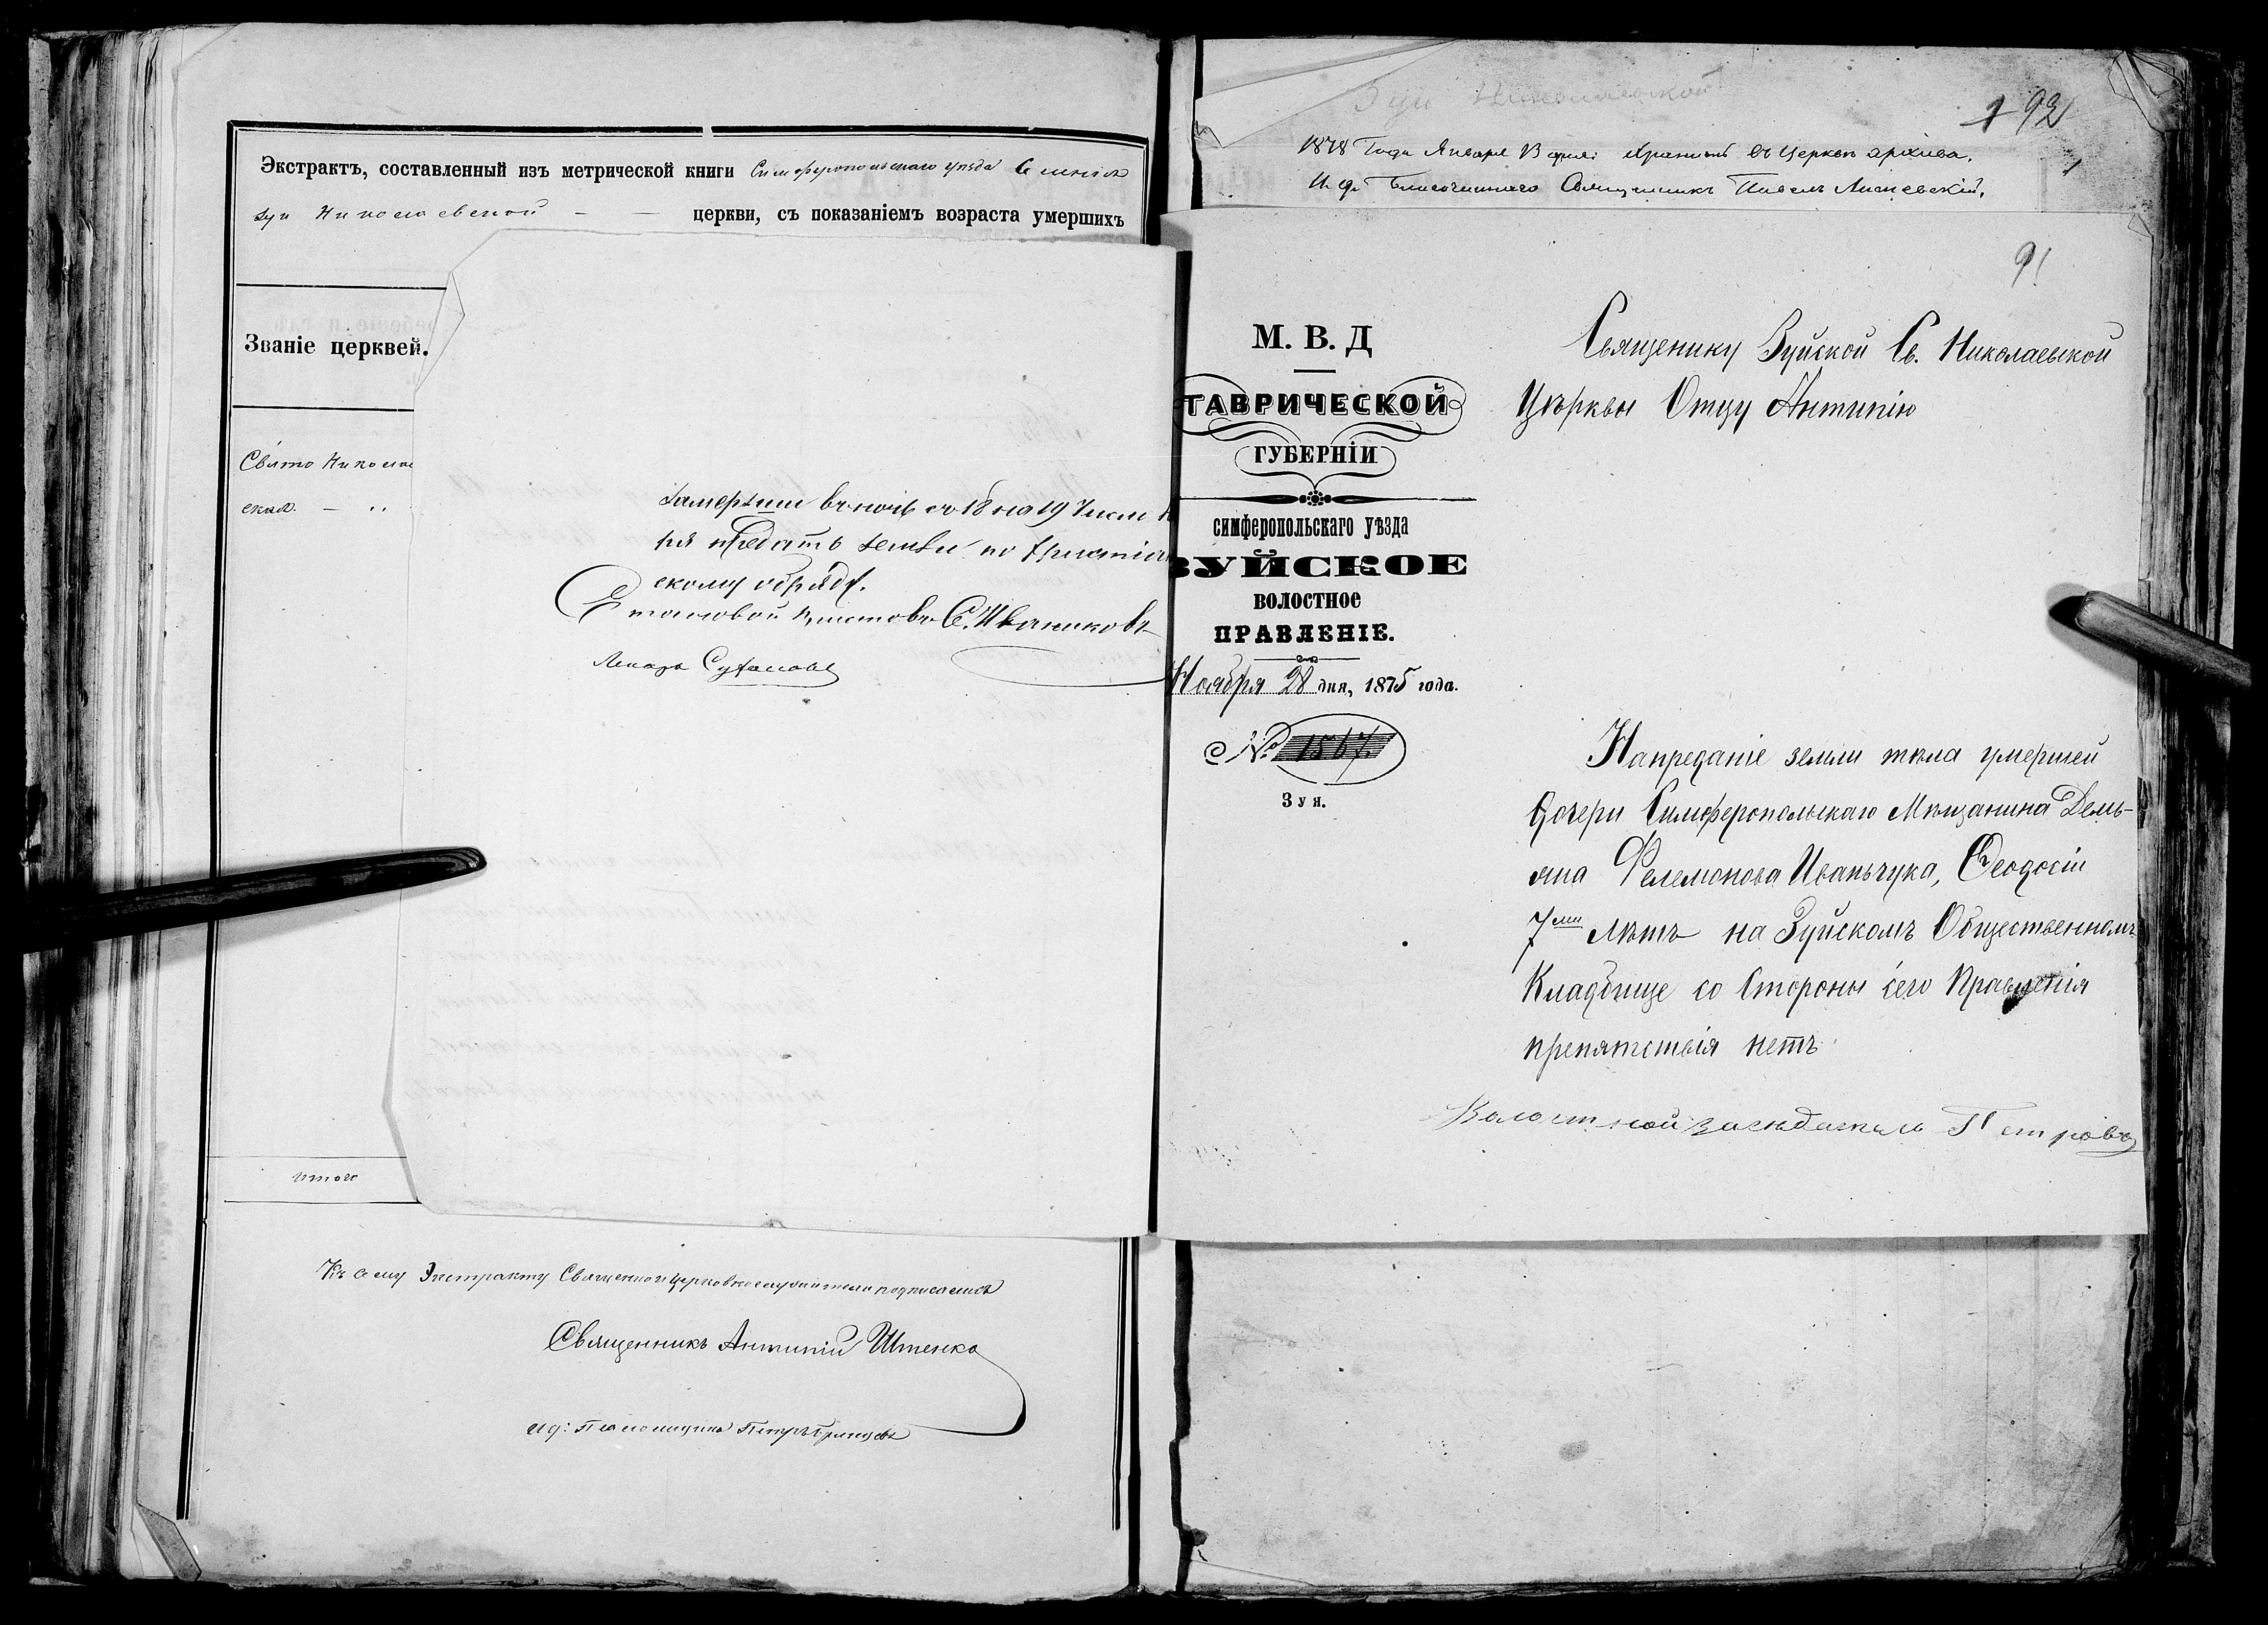 Экстрактъ, составленный изъ метрической книги Симферопольскаго уѣзда Селенія
Зуи Николаевской — — церкви, съ показаніемъ возраста умершихъ
Званіе церквей.
Свято Николае
ская — "
Замерзши въ ночь съ 18 на 19 Числа
ря предать земли по христіан
скому обряду.
Становой Приставъ С. Иваников
Лекарь Сухановъ
итого
Къ сему Экстракту Священноицерковнослужители подписались
Священникъ Антипій Штенко
ид: Псаломщика Петръ
Зуи Николаевской
192
1
1878 Года Января 13 дня: Хранить въ Церков архиве.
И. д. Благочиннаго Священникъ Павелъ
91
М. В. Д
ТАВРИЧЕСКОЙ
ГУБЕРНІИ
СИМФЕРОПОЛЬСКАГО УѢЗДА
ЗУЙСКОЕ
ВОЛОСТНОЕ
ПРАВЛЕНІЕ.
Ноября 28 дня, 1875 года.
№ 1567.
Зуя.
Священику Зуйской Св. Николаевской
Цѣрквы Отцу Антипію
Напреданіе земли тѣла умершей
дочери Симферопольскаго Мѣщанина Демь-
яна Фелемонова Иваньчука, Феодосіи
7ми лѣтъ на Зуйскомъ Общественномъ
Кладбище со Стороны сего Правленія
препятствія нетъ
Волостной заседатель Петровъ